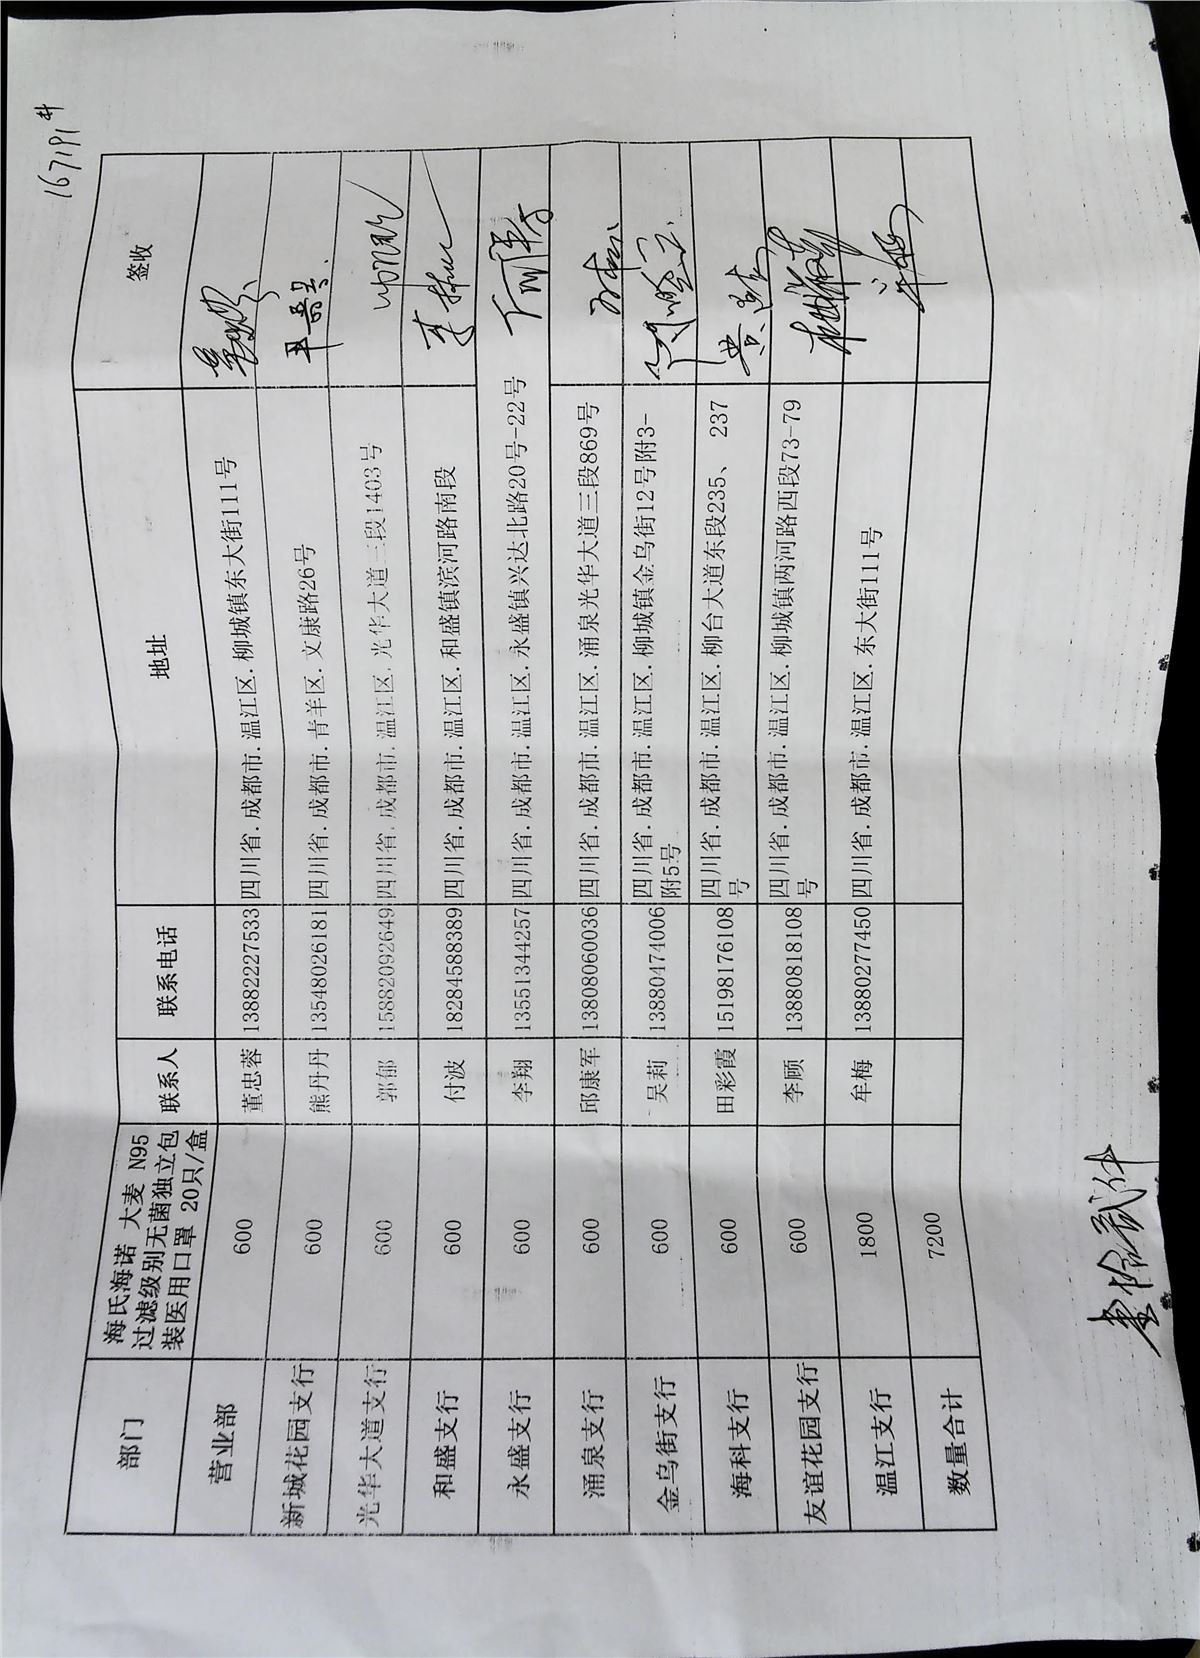 167191
部门 海氏海诺 大麦 N95 过滤级别无菌独立包装医用口罩 20只/盒 联系人 联系电话 地址 签收
营业部 600 董忠蓉 13882227533 四川省.成都市.温江区.柳城镇东大街111号
新城花园支行 600 熊丹丹 13548026181 四川省.成都市.青羊区.文康路26号
光华大道支行 600 郭郁 15882092649 四川省.成都市.温江区.光华大道三段1403号
和盛支行 600 付波 18284588389 四川省.成都市.温江区.和盛镇滨河路南段
永盛支行 600 李翔 13551344257 四川省.成都市.温江区.永盛镇兴达北路20号-22号
涌泉支行 600 邱康军 13808060036 四川省.成都市.温江区.涌泉光华大道三段869号
金乌街支行 600 吴莉 13880474006 四川省.成都市.温江区.柳城镇金乌街12号附3-附5号
海科支行 600 田彩霞 15198176108 四川省.成都市.温江区.柳台大道东段235、 237号
友谊花园支行 600 李顾 13880818108 四川省.成都市.温江区.柳城镇两河路西段73-79号
温江支行 1800 牟梅 13880277450 四川省.成都市.温江区.东大街111号
数量合计 7200